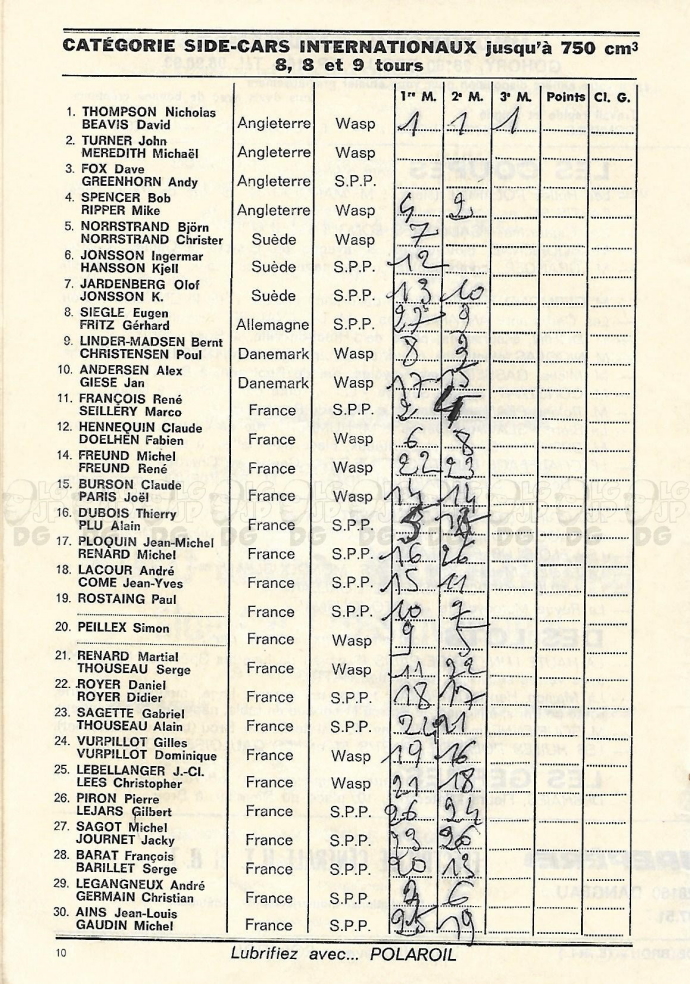 CATÉGORIE SIDE-CARS INTERNATIONAUX jusqu'à 750 cm³
8, 8 et 9 tours
1re M. 2e M. 3e M. Points Cl. G.
1. THOMPSON Nicholas
BEAVIS David Angleterre Wasp 1 1 1
2. TURNER John
MEREDITH Michaël Angleterre Wasp
3. FOX Dave
GREENHORN Andy Angleterre S.P.P.
4. SPENCER Bob
RIPPER Mike Angleterre Wasp 4 2
5. NORRSTRAND Björn
NORRSTRAND Christer Suède Wasp 7
6. JONSSON Ingermar
HANSSON Kjell Suède S.P.P. 12
7. JARDENBERG Olof
JONSSON K. Suède S.P.P. 13 10
8. SIEGLE Eugen
FRITZ Gérhard Allemagne S.P.P. 27 9
9. LINDER-MADSEN Bernt
CHRISTENSEN Poul Danemark Wasp 8 3
10. ANDERSEN Alex
GIESE Jan Danemark Wasp 17 15
11. FRANÇOIS René
SEILLERY Marco France S.P.P. 2 4
12. HENNEQUIN Claude
DOELHEN Fabien France Wasp 6 8
14. FREUND Michel
FREUND René France Wasp 22 23
15. BURSON Claude
PARIS Joël France Wasp 14 14
16. DUBOIS Thierry
PLU Alain France S.P.P.
17. PLOQUIN Jean-Michel
RENARD Michel France S.P.P. 16 26
18. LACOUR André
COME Jean-Yves France S.P.P. 15 11
19. ROSTAING Paul
France S.P.P. 10 7
20. PEILLEX Simon
France Wasp 9 5
21. RENARD Martial
THOUSEAU Serge France Wasp 11 22
22. ROYER Daniel
ROYER Didier France S.P.P. 18 17
23. SAGETTE Gabriel
THOUSEAU Alain France S.P.P. 24 21
24. VURPILLOT Gilles
VURPILLOT Dominique France Wasp 19 16
25. LEBELLANGER J.-Cl.
LEES Christopher France Wasp 21 18
26. PIRON Pierre
LEJARS Gilbert France S.P.P. 26 24
27. SAGOT Michel
JOURNET Jacky France S.P.P.
28. BARAT François
BARILLET Serge France S.P.P. 20 13
29. LEGANGNEUX André
GERMAIN Christian France S.P.P. 6
30. AINS Jean-Louis
GAUDIN Michel France S.P.P. 25 19
10 Lubrifiez avec... POLAROIL